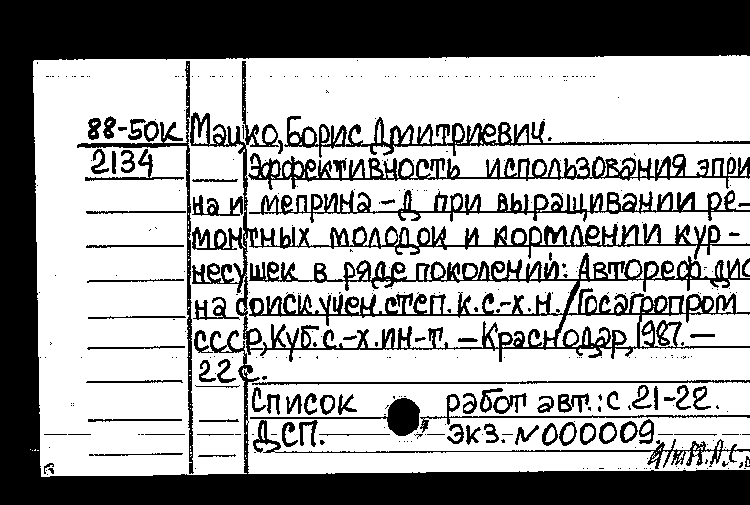 88-50к Мацко, Борис Дмитриевич.
2134 Эффективность использования эпри
на и меприна-Д при выращивании ре-
монтных молодок и кормлении кур-
несушек в ряде поколений: Автореф. дис
на соиск. учен. степ. к.с.-х.н. / Госагропром
СССР, Куб. с.-х. ин-т. — Краснодар, 1987. —
22 с.
Список работ авт.: с. 21-22.
ДСП. Экз. N000009